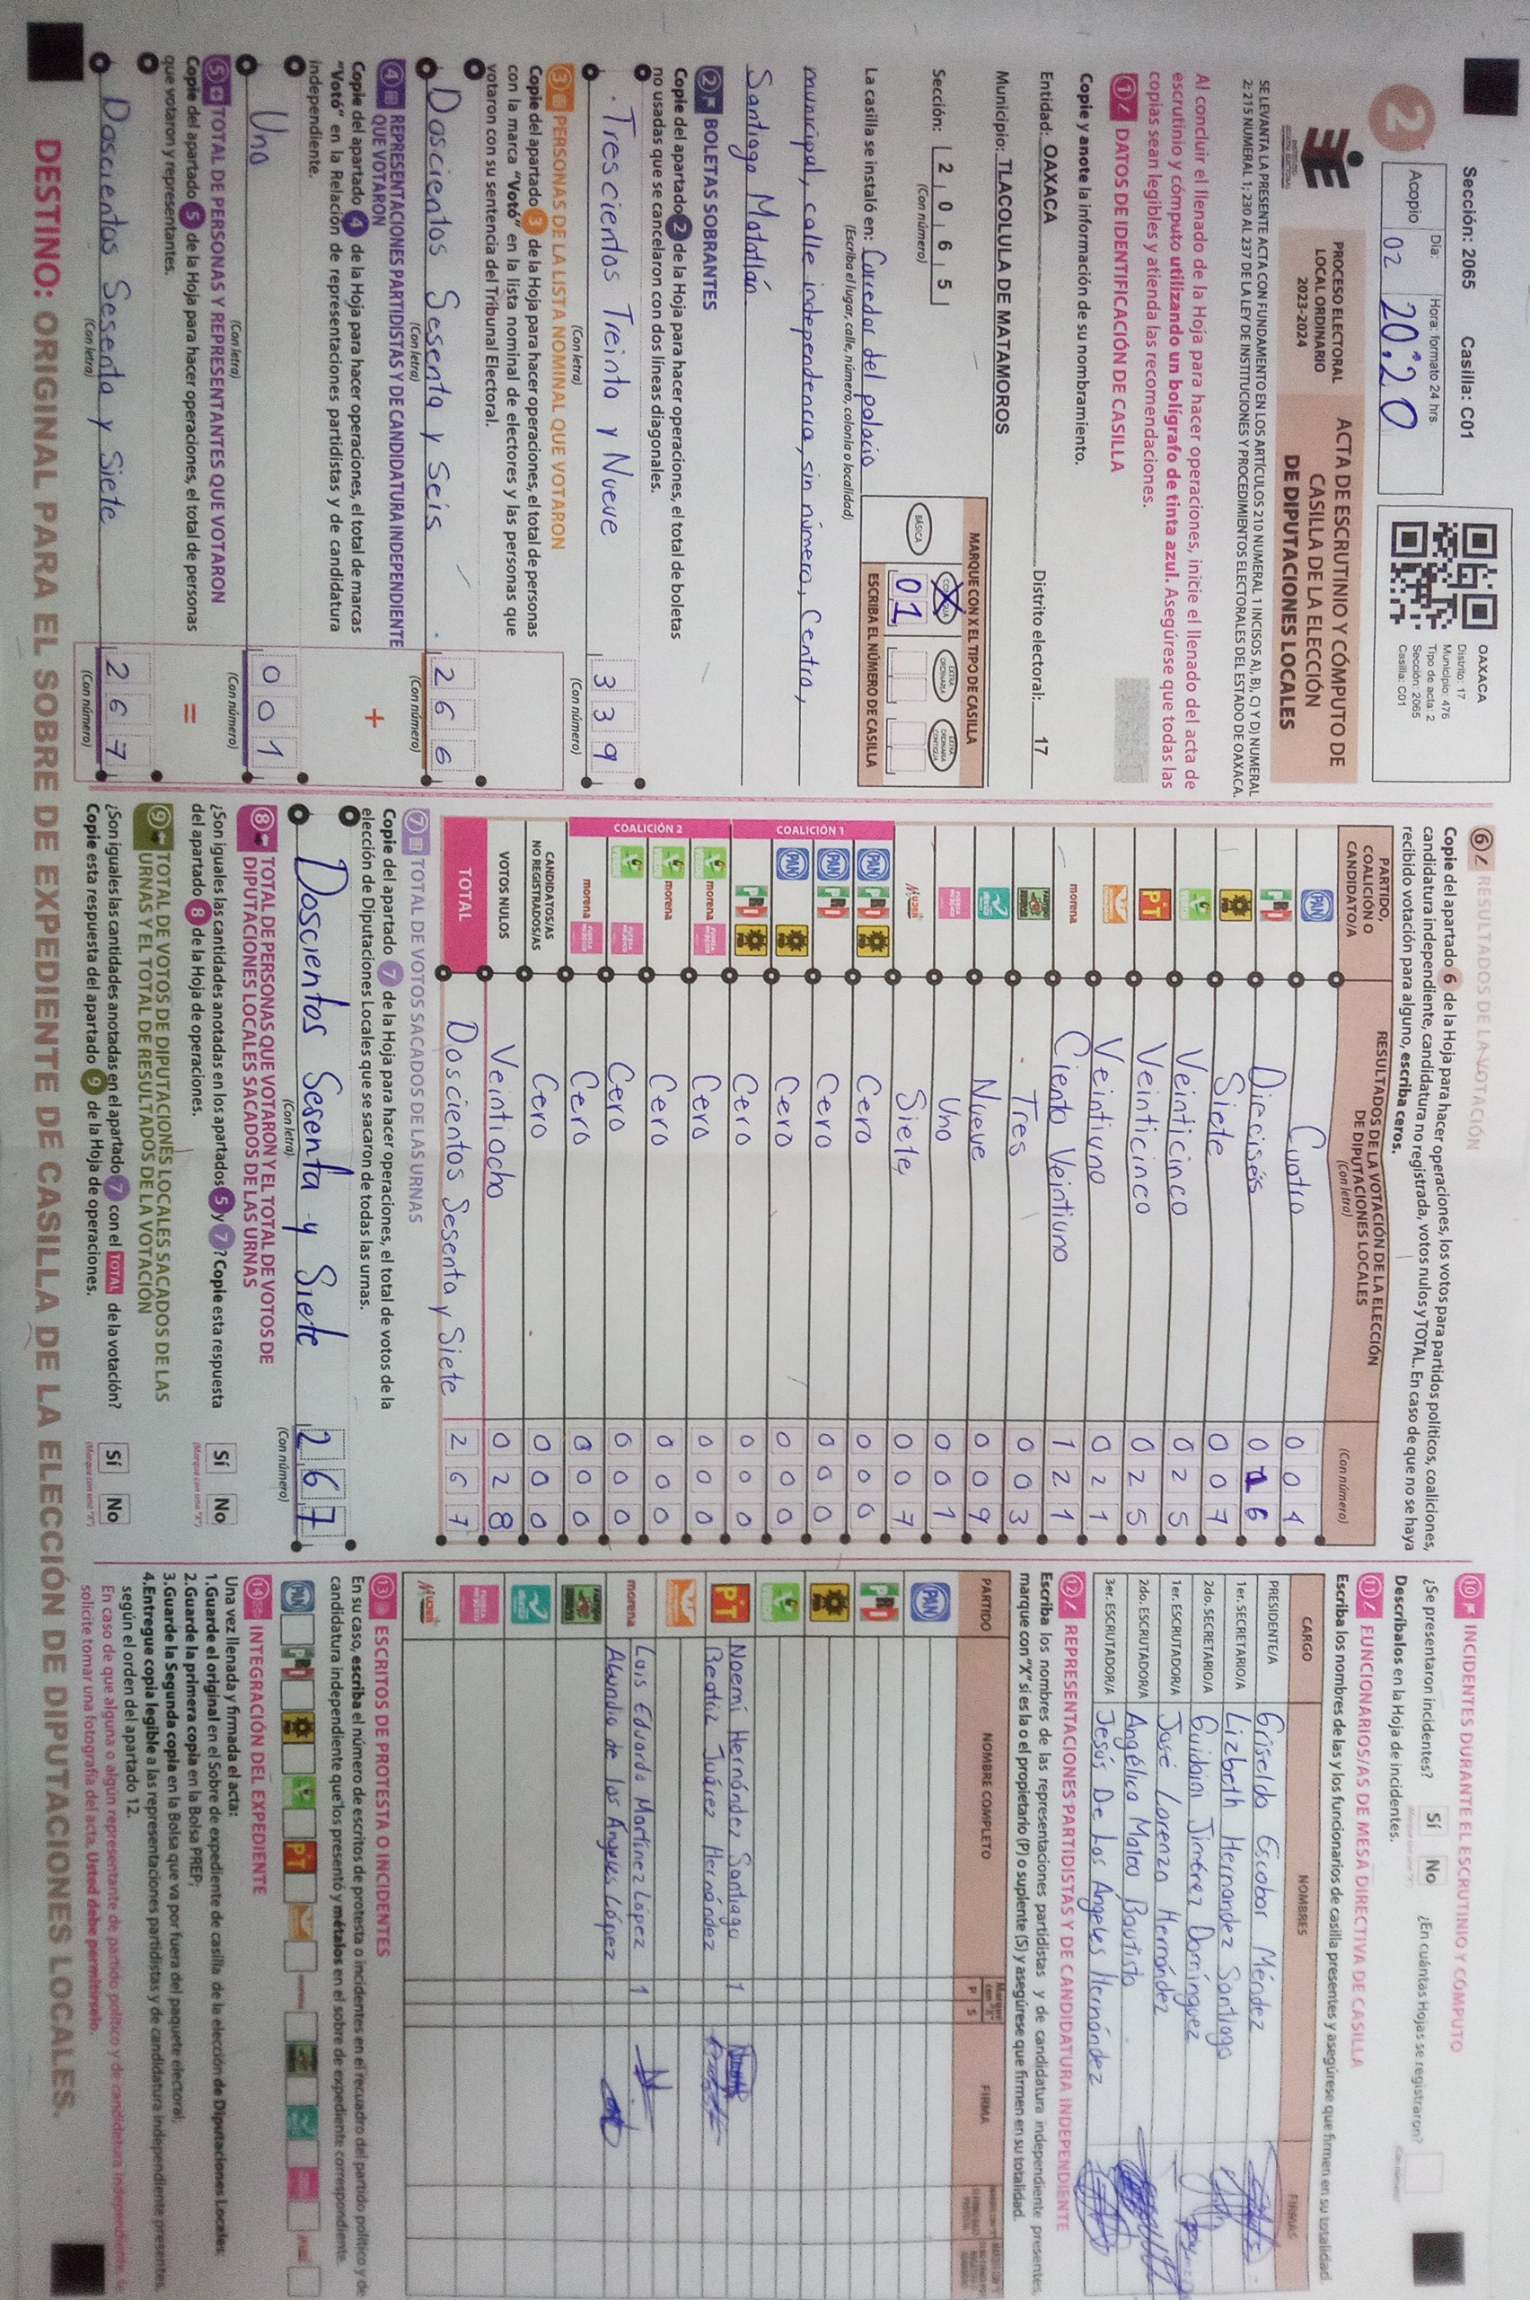 Sección: 2065 Casilla: C01
Acopio Día: Hora: formato 24 hrs
02 20:20
2
OAXACA
Distrito: 17
Municipio: 476
Tipo de acta: 2
Sección: 2065
Casilla: C01
PROCESO ELECTORAL
LOCAL ORDINARIO
2023-2024
ACTA DE ESCRUTINIO Y CÓMPUTO DE
CASILLA DE LA ELECCIÓN
DE DIPUTACIONES LOCALES
SE LEVANTA LA PRESENTE ACTA CON FUNDAMENTO EN LOS ARTÍCULOS 210 NUMERAL 1 INCISOS A), B), C) Y D) NUMERAL
2; 215 NUMERAL 1; 230 AL 237 DE LA LEY DE INSTITUCIONES Y PROCEDIMIENTOS ELECTORALES DEL ESTADO DE OAXACA.
Al concluir el llenado de la Hoja para hacer operaciones, inicie el llenado del acta de
escrutinio y cómputo utilizando un bolígrafo de tinta azul. Asegúrese que todas las
copias sean legibles y atienda las recomendaciones.
1 DATOS DE IDENTIFICACIÓN DE CASILLA
Copie y anote la información de su nombramiento.
Entidad: OAXACA Distrito electoral: 17
Municipio: TLACOLULA DE MATAMOROS
Sección: 2 0 6 5
(Con número)
MARQUE CON X EL TIPO DE CASILLA
BÁSICA
EXTRAORDINARIA
EXTRAORDINARIA CONTIGUA
01
ESCRIBA EL NÚMERO DE CASILLA
La casilla se instaló en: Corredor del palacio
(Escriba el lugar, calle, número, colonia o localidad)
municipal, calle independencia, sin número, Centro,
Santiago Matatlán
2 BOLETAS SOBRANTES
Copie del apartado 2 de la Hoja para hacer operaciones, el total de boletas
no usadas que se cancelaron con dos líneas diagonales.
Trescientos Treinta y Nueve 3 3 9
(Con letra) (Con número)
3 PERSONAS DE LA LISTA NOMINAL QUE VOTARON
Copie del apartado 3 de la Hoja para hacer operaciones, el total de personas
con la marca "Votó" en la lista nominal de electores y las personas que
votaron con su sentencia del Tribunal Electoral.
Doscientos Sesenta y Seis 2 6 6
(Con letra) (Con número)
4 REPRESENTACIONES PARTIDISTAS Y DE CANDIDATURA INDEPENDIENTE
QUE VOTARON
Copie del apartado 4 de la Hoja para hacer operaciones, el total de marcas
"Votó" en la Relación de representaciones partidistas y de candidatura
independiente.
+
Uno 0 0 1
(Con letra) (Con número)
5 TOTAL DE PERSONAS Y REPRESENTANTES QUE VOTARON
Copie del apartado 5 de la Hoja para hacer operaciones, el total de personas
que votaron y representantes.
=
Doscientos Sesenta y Siete 2 6 7
(Con letra) (Con número)
6 RESULTADOS DE LA VOTACIÓN
Copie del apartado 6 de la Hoja para hacer operaciones, los votos para partidos políticos, coaliciones,
candidatura independiente, candidatura no registrada, votos nulos y TOTAL. En caso de que no se haya
recibido votación para alguno, escriba ceros.
PARTIDO,
COALICIÓN O
CANDIDATO/A
RESULTADOS DE LA VOTACIÓN DE LA ELECCIÓN
DE DIPUTACIONES LOCALES
(Con letra) (Con número)
PAN Cuatro 0 0 4
PRI Dieciséis 0 1 6
Siete 0 0 7
Veinticinco 0 2 5
PT Veinticinco 0 2 5
Veintiuno 0 2 1
morena Ciento Veintiuno 1 2 1
Tres 0 0 3
Nueve 0 0 9
Uno 0 0 1
Mujer Siete 0 0 7
COALICIÓN 1
PAN PRI Cero 0 0 0
PAN PRI Cero 0 0 0
PAN Cero 0 0 0
PRI Cero 0 0 0
COALICIÓN 2
morena Cero 0 0 0
morena Cero 0 0 0
Cero 0 0 0
morena Cero 0 0 0
CANDIDATOS/AS
NO REGISTRADOS/AS Cero 0 0 0
VOTOS NULOS Veintiocho 0 2 8
TOTAL Doscientos Sesenta y Siete 2 6 7
7 TOTAL DE VOTOS SACADOS DE LAS URNAS
Copie del apartado 7 de la Hoja para hacer operaciones, el total de votos de la
elección de Diputaciones Locales que se sacaron de todas las urnas.
Doscientos Sesenta y Siete 2 6 7
(Con letra) (Con número)
8 TOTAL DE PERSONAS QUE VOTARON Y EL TOTAL DE VOTOS DE
DIPUTACIONES LOCALES SACADOS DE LAS URNAS
¿Son iguales las cantidades anotadas en los apartados 5 y 7? Copie esta respuesta
del apartado 8 de la Hoja de operaciones.
Sí No
(Marque con una "X")
9 TOTAL DE VOTOS DE DIPUTACIONES LOCALES SACADOS DE LAS
URNAS Y EL TOTAL DE RESULTADOS DE LA VOTACIÓN
¿Son iguales las cantidades anotadas en el apartado 7 con el TOTAL de la votación?
Copie esta respuesta del apartado 9 de la Hoja de operaciones.
Sí No
(Marque con una "X")
10 INCIDENTES DURANTE EL ESCRUTINIO Y CÓMPUTO
¿Se presentaron incidentes? Sí No ¿En cuántas Hojas se registraron?
Descríbalos en la Hoja de incidentes.
11 FUNCIONARIOS/AS DE MESA DIRECTIVA DE CASILLA
Escriba los nombres de las y los funcionarios de casilla presentes y asegúrese que firmen en su totalidad.
CARGO NOMBRES FIRMAS
PRESIDENTE/A Griselda Escobar Méndez
1er. SECRETARIO/A Lizbeth Hernandez Santiago
2do. SECRETARIO/A Guidaini Jiménez Domínguez
1er. ESCRUTADOR/A José Lorenzo Hernández
2do. ESCRUTADOR/A Angélica Mateo Bautista
3er. ESCRUTADOR/A Jesús De Los Angeles Hernández
12 REPRESENTACIONES PARTIDISTAS Y DE CANDIDATURA INDEPENDIENTE
Escriba los nombres de las representaciones partidistas y de candidatura independiente presentes,
marque con "X" si es la o el propietario (P) o suplente (S) y asegúrese que firmen en su totalidad.
PARTIDO NOMBRE COMPLETO P S FIRMA
PAN
PRI
PT Noemí Hernández Santiago 1
Beatriz Juárez Hernández
morena Luis Eduardo Martínez López 1
Abundio de los Ángeles López
Mujer
13 ESCRITOS DE PROTESTA O INCIDENTES
En su caso, escriba el número de escritos de protesta o incidentes en el recuadro del partido político y de
candidatura independiente que los presentó y métalos en el sobre de expediente correspondiente.
PAN PRI PT
14 INTEGRACIÓN DEL EXPEDIENTE
Una vez llenada y firmada el acta:
1.Guarde el original en el Sobre de expediente de casilla de la elección de Diputaciones Locales;
2.Guarde la primera copia en la Bolsa PREP;
3.Guarde la Segunda copia en la Bolsa que va por fuera del paquete electoral;
4.Entregue copia legible a las representaciones partidistas y de candidatura independiente presentes,
según el orden del apartado 12.
En caso de que alguna o algún representante de partido político y de candidatura independiente, le
solicite tomar una fotografía del acta. Usted debe permitírselo.
DESTINO: ORIGINAL PARA EL SOBRE DE EXPEDIENTE DE CASILLA DE LA ELECCIÓN DE DIPUTACIONES LOCALES.